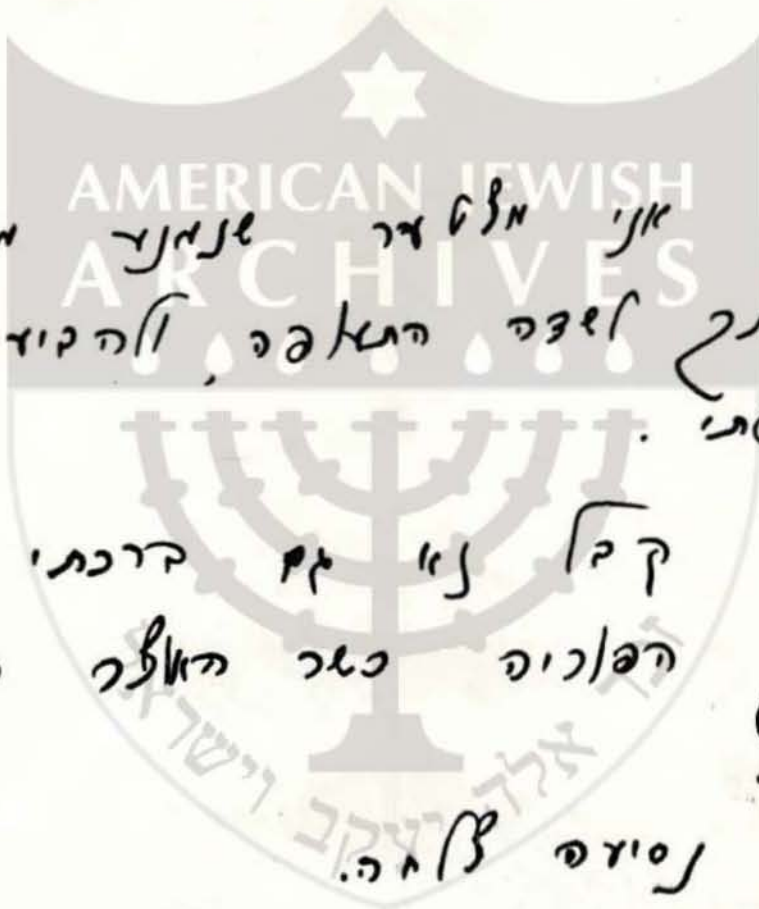 AMERICAN JEWISH
ARCHIVES
אני מצטער שנמנע
לשדה התעופה, ולהביע
קבל נא גם ברכתי
הפוריה כשר האוצר
נסיעה צלחה.